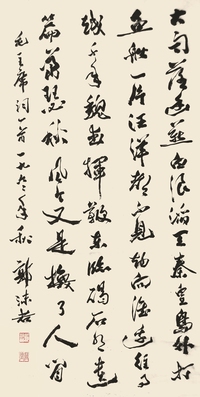 大雨落幽燕白浪滔天秦皇島外打
魚船一片汪洋都不見知向誰邊往事
越千年魏武揮鞭東臨碣石有遺
篇蕭瑟秋風今又是換了人間
毛主席詞一首一九六年秋 郭沫若